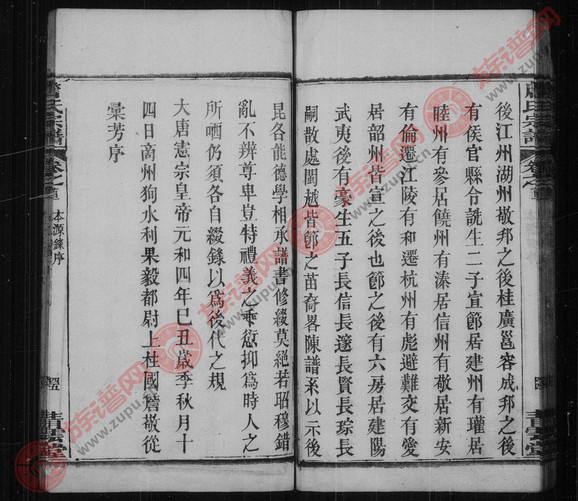 後江州湖州敬邦之後桂廣邕容成邦之後
有侯官縣令詵生二子宣節居建州有瓘居
睦州有參居饒州有溱居信州有敬居新安
有倫遷江陵有和遷杭州有彪避難交有愛
居韶州皆宣之後也節之後有六房居建陽
武夷後有豪生五子長信長邃長賢長琮長
嗣散處閩越皆節之苗裔畧陳譜系以示後
昆各能德學相承譜書修綴莫絕若昭穆錯
亂不辨尊卑豈特禮義之乖愆抑為時人之
所哂仍須各自綴錄以為後代之規
大唐憲宗皇帝元和四年巳丑歲季秋月十
四日商州狗水利果毅都尉上柱國詹敬從
彙芳序
詹氏宗譜
卷之首
本源錄序
五
詹氏宗譜
卷之首
四
族谱网
www.zupu.cn